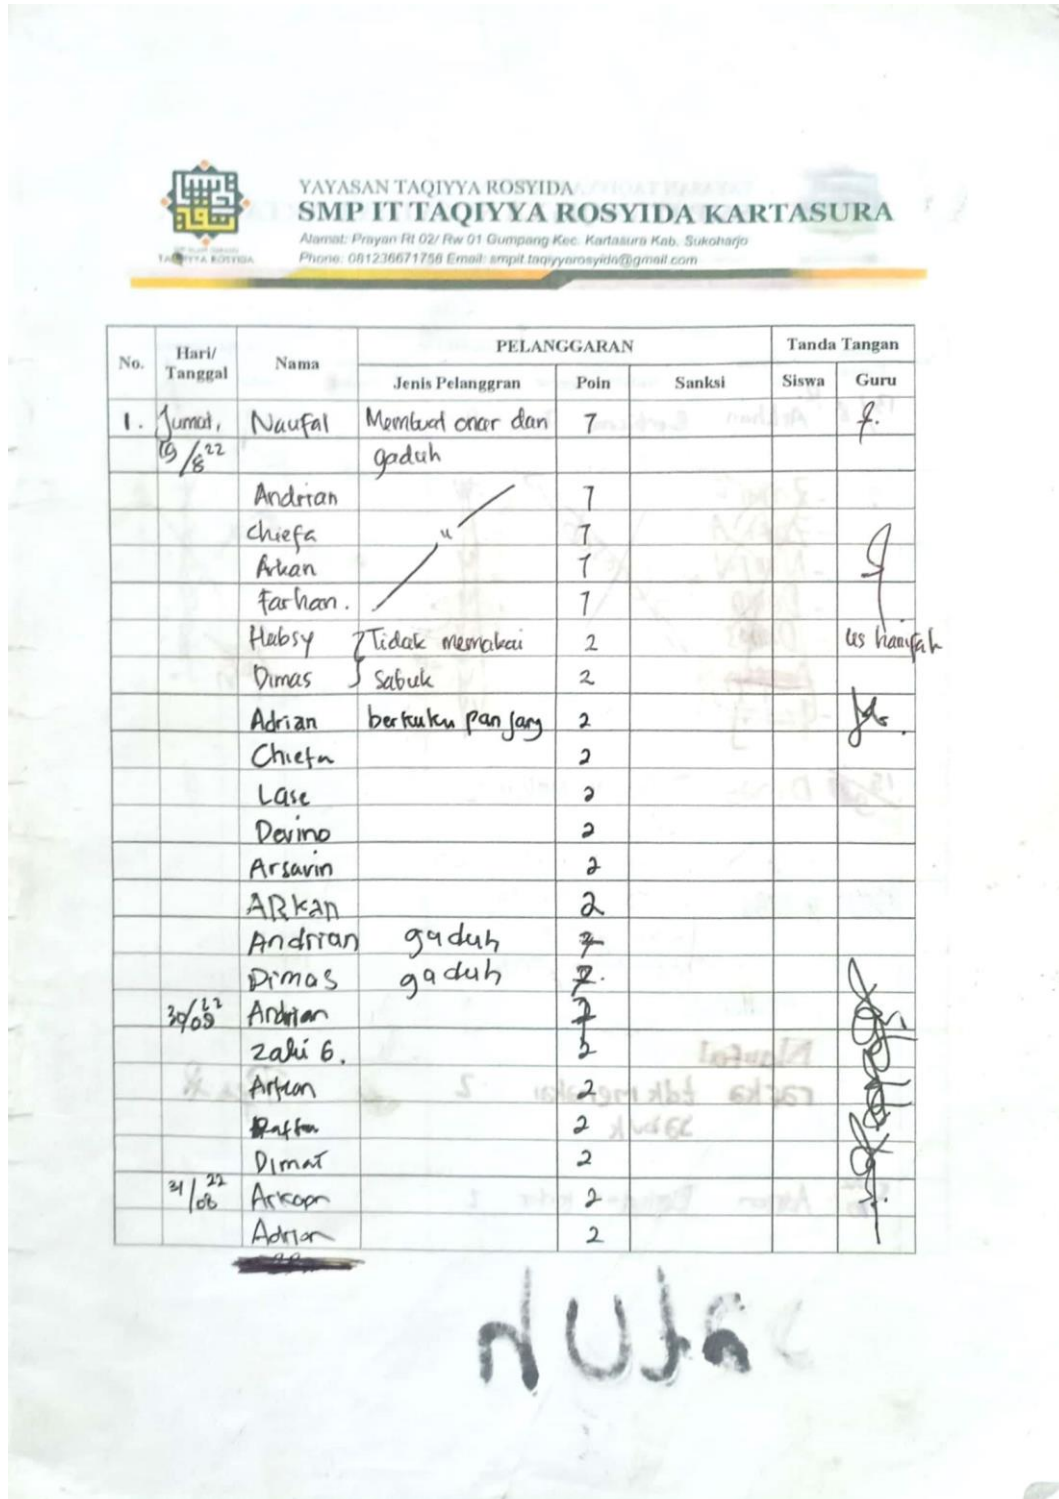 YAYASAN TAQIYYA ROSYIDA
SMP IT TAQIYYA ROSYIDA KARTASURA
Alamat: Prayan Rt 02/ Rw 01 Gumpang Kec. Kartasura Kab. Sukoharjo
TAQIYYA ROSYIDA Phone: 081236671756 Email: smpit.taqiyyarosyida@gmail.com
No. Hari/ Tanggal Nama PELANGGARAN Tanda Tangan
Jenis Pelanggran Poin Sanksi Siswa Guru
1. Jumat, Naufal Membuat onar dan 7
19/8 22 gaduh
Andrian " 7
Chiefa 7
Arkan 7
Farhan. 7
Habsy Tidak memakai 2 us hanifah
Dimas Sabuk 2
Adrian berkuku panjang 2
Chiefa 2
Lase 2
Devino 2
Arsavin 2
ARKAN 2
Andrian gaduh 7
Dimas gaduh 7.
30/08 22 Andrian
Zaki G. 2
Arkan 2
Raffa 2
Dimas 2
31/08 22 Arkaan 2
Adrian 2